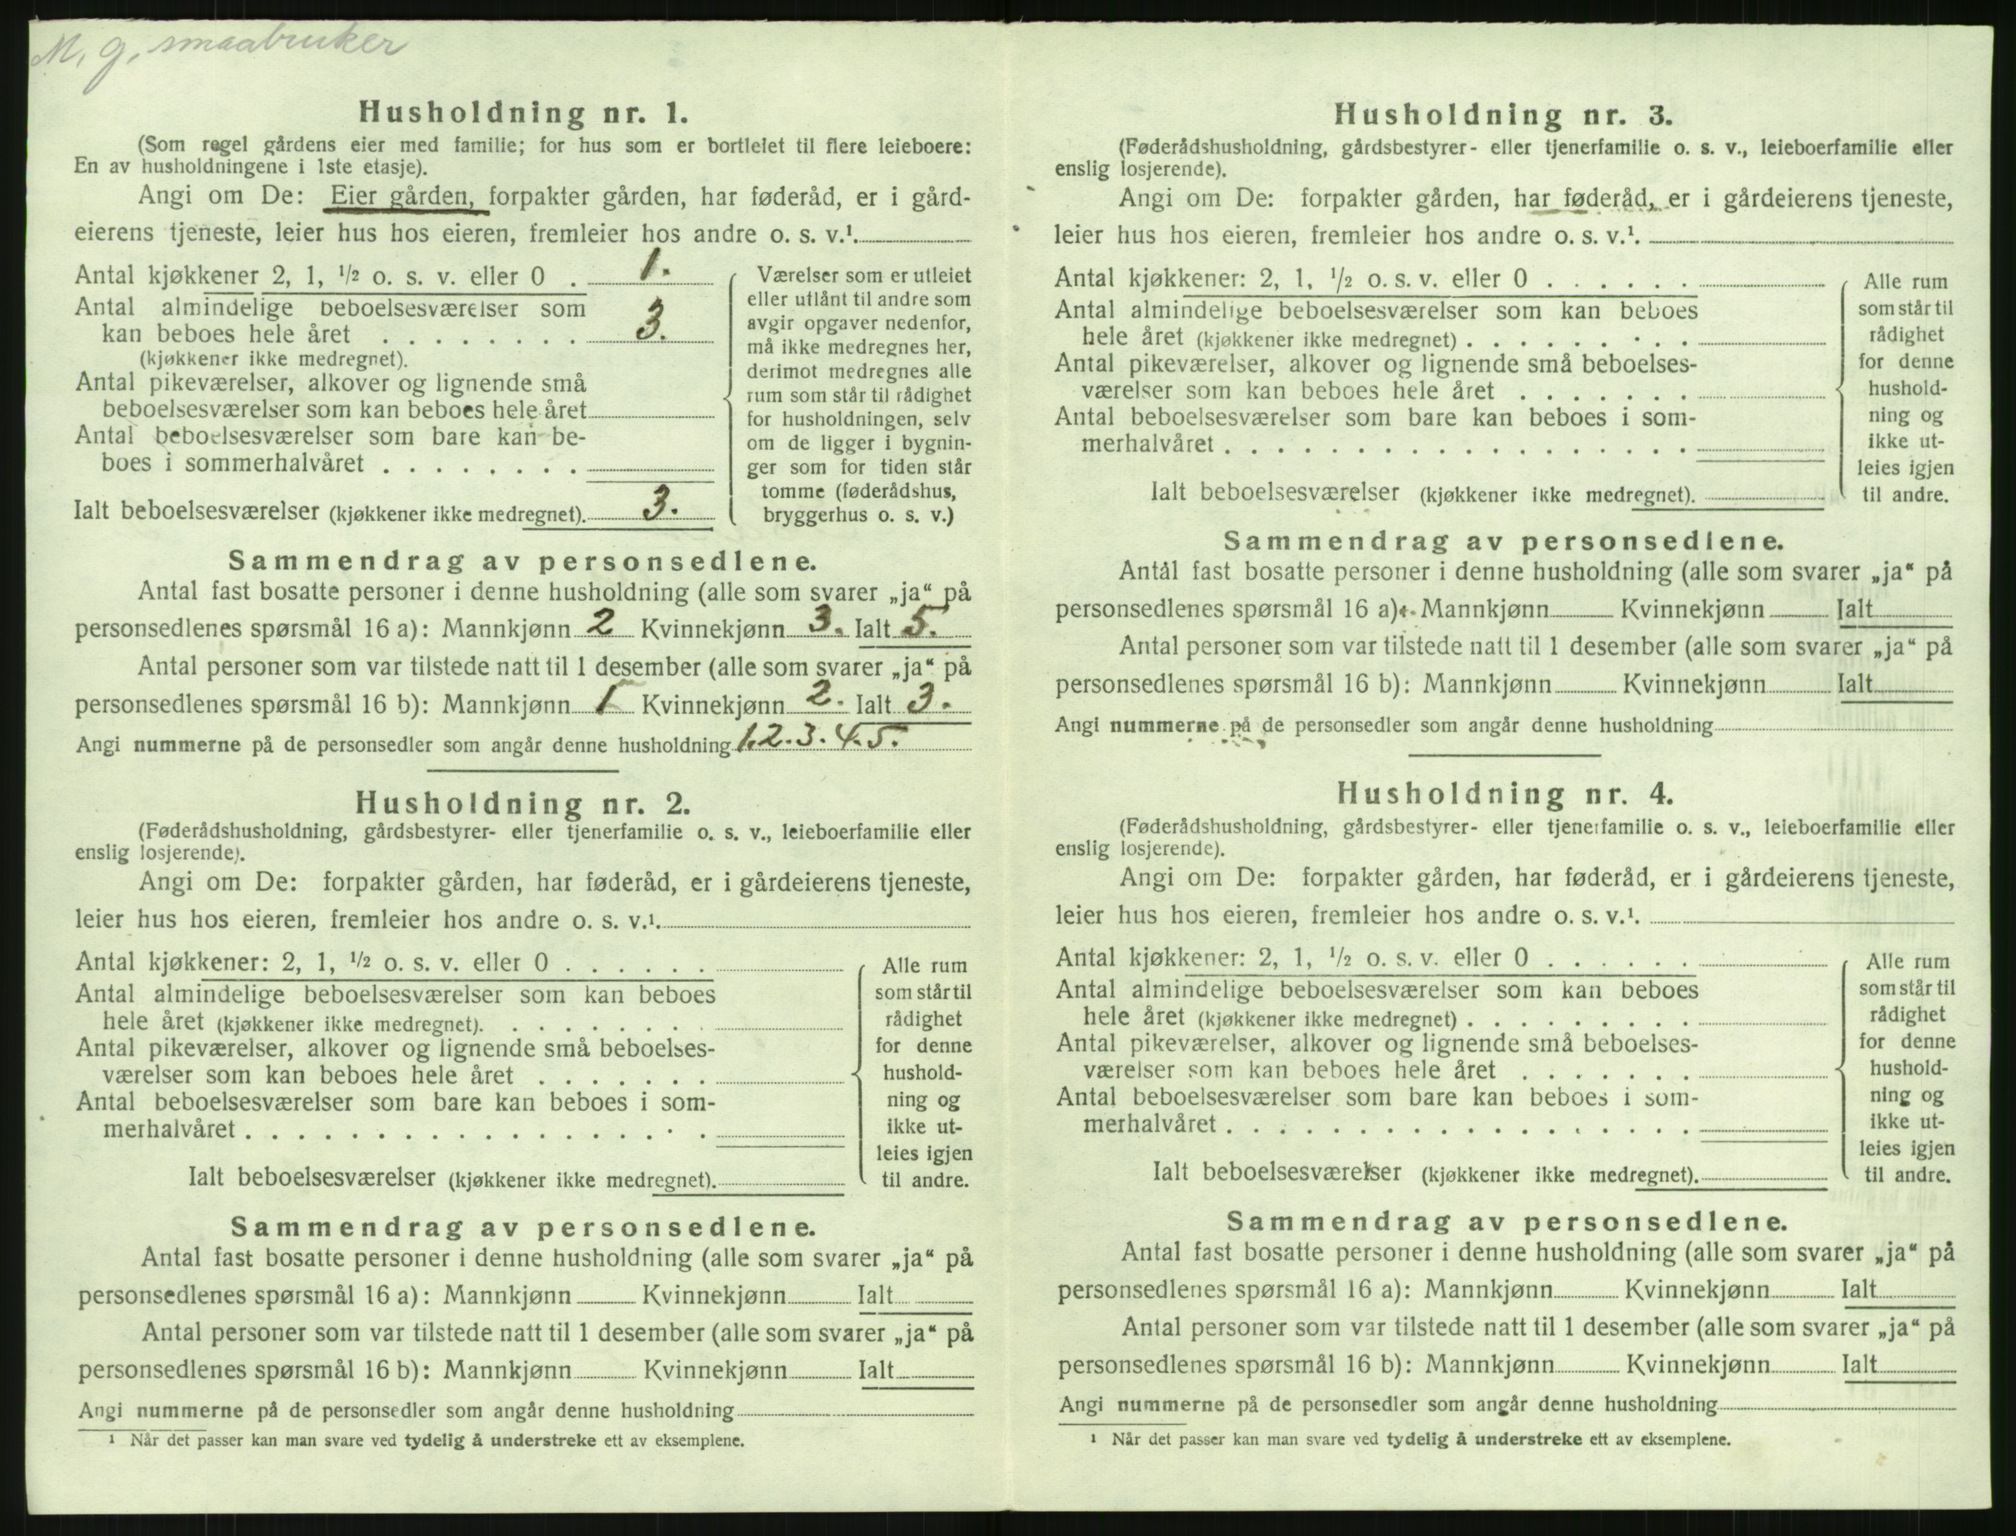 M, g, smaabruker
Husholdning nr. 1.
(Som regel gårdens eier med familie; for hus som er bortleiet til flere leieboere:
En av husholdningene i 1ste etasje).
Angi om De: Eier gården, forpakter gården, har føderåd, er i gård-
eierens tjeneste, leier hus hos eieren, fremleier hos andre o. s. v.¹.
Antal kjøkkener 2, 1, ½ o. s. v. eller 0 . 1.
Antal almindelige beboelsesværelser som
kan beboes hele året . . . . . . . . 3.
(kjøkkener ikke medregnet).
Antal pikeværelser, alkover og lignende små
beboelsesværelser som kan beboes hele året
Antal beboelsesværelser som bare kan be-
boes i sommerhalvåret . . . . . . . .
Ialt beboelsesværelser (kjøkkener ikke medregnet). 3.
Værelser som er utleiet
eller utlånt til andre som
avgir opgaver nedenfor,
må ikke medregnes her,
derimot medregnes alle
rum som står til rådighet
for husholdningen, selv
om de ligger i bygnin-
ger som for tiden står
tomme (føderådshus,
bryggerhus o. s. v.)
Sammendrag av personsedlene.
Antal fast bosatte personer i denne husholdning (alle som svarer „ja“ på
personsedlenes spørsmål 16 a): Mannkjønn 2 Kvinnekjønn 3. Ialt 5.
Antal personer som var tilstede natt til 1 desember (alle som svarer „ja“ på
personsedlenes spørsmål 16 b): Mannkjønn 1 Kvinnekjønn 2. Ialt 3.
Angi nummerne på de personsedler som angår denne husholdning 1.2.3.4.5.
Husholdning nr. 2.
(Føderådshusholdning, gårdsbestyrer- eller tjenerfamilie o. s. v., leieboerfamilie eller
enslig losjerende).
Angi om De: forpakter gården, har føderåd, er i gårdeierens tjeneste,
leier hus hos eieren, fremleier hos andre o. s. v.¹.
Antal kjøkkener: 2, 1, ½ o. s. v. eller 0 . . . . . .
Antal almindelige beboelsesværelser som kan beboes
hele året (kjøkkener ikke medregnet). . . . . . . . .
Antal pikeværelser, alkover og lignende små beboelses-
værelser som kan beboes hele året . . . . . . .
Antal beboelsesværelser som bare kan beboes i som-
merhalvåret . . . . . . . . . . . . . . . . . .
Ialt beboelsesværelser (kjøkkener ikke medregnet).
Alle rum
som står til
rådighet
for denne
hushold-
ning og
ikke ut-
leies igjen
til andre.
Sammendrag av personsedlene.
Antal fast bosatte personer i denne husholdning (alle som svarer „ja“ på
personsedlenes spørsmål 16 a): Mannkjønn Kvinnekjønn Ialt
Antal personer som var tilstede natt til 1 desember (alle som svarer „ja“ på
personsedlenes spørsmål 16 b): Mannkjønn Kvinnekjønn Ialt
Angi nummerne på de personsedler som angår denne husholdning
¹ Når det passer kan man svare ved tydelig å understreke ett av eksemplene.
Husholdning nr. 3.
(Føderådshusholdning, gårdsbestyrer- eller tjenerfamilie o. s. v., leieboerfamilie eller
enslig losjerende).
Angi om De: forpakter gården, har føderåd, er i gårdeierens tjeneste,
leier hus hos eieren, fremleier hos andre o. s. v.¹.
Antal kjøkkener: 2, 1, ½ o. s. v. eller 0 . . . . . .
Antal almindelige beboelsesværelser som kan beboes
hele året (kjøkkener ikke medregnet) . . . . . . . . .
Antal pikeværelser, alkover og lignende små beboelses-
værelser som kan beboes hele året . . . . . . .
Antal beboelsesværelser som bare kan beboes i som-
merhalvåret . . . . . . . . . . . . . . . . . .
Ialt beboelsesværelser (kjøkkener ikke medregnet).
Alle rum
som står til
rådighet
for denne
hushold-
ning og
ikke ut-
leies igjen
til andre.
Sammendrag av personsedlene.
Antal fast bosatte personer i denne husholdning (alle som svarer „ja“ på
personsedlenes spørsmål 16 a): Mannkjønn Kvinnekjønn Ialt
Antal personer som var tilstede natt til 1 desember (alle som svarer „ja“ på
personsedlenes spørsmål 16 b): Mannkjønn Kvinnekjønn Ialt
Angi nummerne på de personsedler som angår denne husholdning
Husholdning nr. 4.
(Føderådshusholdning, gårdsbestyrer- eller tjenerfamilie o. s. v., leieboerfamilie eller
enslig losjerende).
Angi om De: forpakter gården, har føderåd, er i gårdeierens tjeneste,
leier hus hos eieren, fremleier hos andre o. s. v.¹.
Antal kjøkkener: 2, 1, ½ o. s. v. eller 0 . . . . . .
Antal almindelige beboelsesværelser som kan beboes
hele året (kjøkkener ikke medregnet) . . . . . . . . .
Antal pikeværelser, alkover og lignende små beboelses-
værelser som kan beboes hele året . . . . . . .
Antal beboelsesværelser som bare kan beboes i som-
merhalvåret . . . . . . . . . . . . . . . . . .
Ialt beboelsesværelser (kjøkkener ikke medregnet).
Alle rum
som står til
rådighet
for denne
hushold-
ning og
ikke ut-
leies igjen
til andre.
Sammendrag av personsedlene.
Antal fast bosatte personer i denne husholdning (alle som svarer „ja“ på
personsedlenes spørsmål 16 a): Mannkjønn Kvinnekjønn Ialt
Antal personer som var tilstede natt til 1 desember (alle som svarer „ja“ på
personsedlenes spørsmål 16 b): Mannkjønn Kvinnekjønn Ialt
Angi nummerne på de personsedler som angår denne husholdning
¹ Når det passer kan man svare ved tydelig å understreke ett av eksemplene.